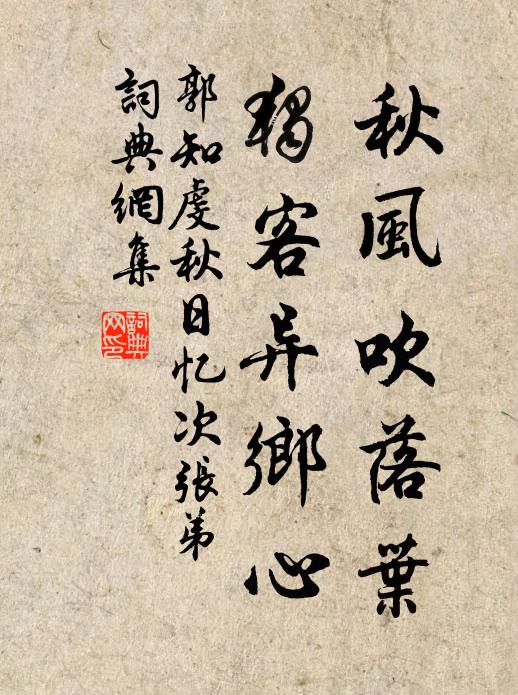 秋風吹落葉
獨客异鄉心
郭知虔秋日忆次張弟
詞典網集
詞典网印